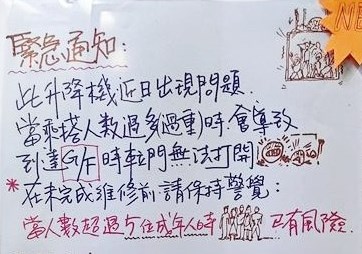 NE
緊急通知：
此升降機近日出現問題.
當乘搭人數過多過重時.會導致
到達G/F時𨋢門無法打開
*在未完成維修前請保持警覺：
當人數超過5位成年人時 已有風險.